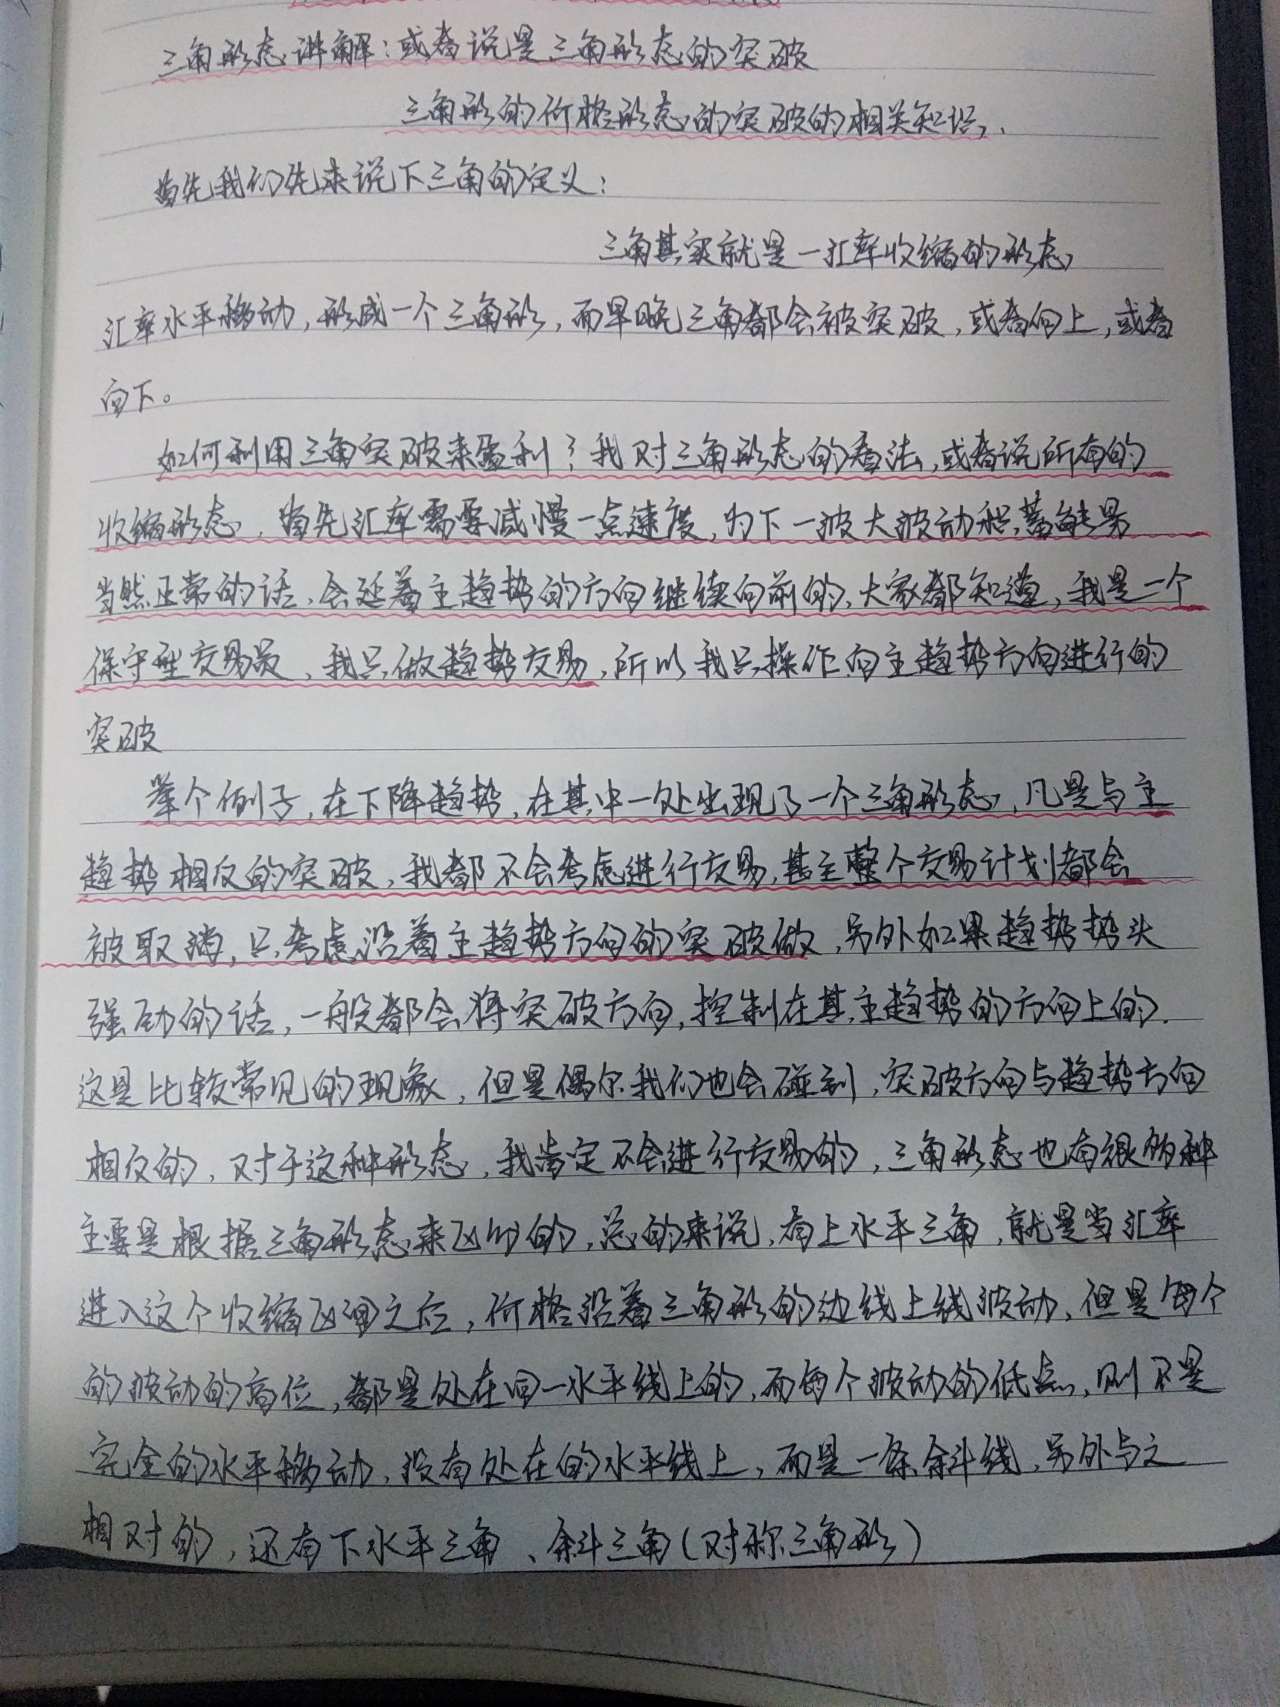 三角形态讲解：或者说是三角形态的突破
三角形的价格形态的突破的相关知识，.
首先我们先来说下三角的定义：
三角其实就是一汇率收缩的形态
汇率水平移动，形成一个三角形，而早晚三角都会被突破，或者向上，或者
向下。
如何利用三角突破来盈利？我对三角形态的看法，或者说所有的
收缩形态，首先汇率需要减慢一点速度，为下一波大波动积蓄能量
当然正常的话，会延着主趋势的方向继续向前的，大家都知道，我是一个
保守型交易员，我只做趋势交易，所以我只操作向主趋势方向进行的
突破
举个例子，在下降趋势，在其中一处出现了一个三角形态，凡是与主
趋势相反的突破，我都不会考虑进行交易，甚至整个交易计划都会
被取消，只考虑沿着主趋势方向的突破做，另外如果趋势势头
强劲的话，一般都会将突破方向，控制在其主趋势的方向上的.
这是比较常见的现象，但是偶尔我们也会碰到，突破方向与趋势方向
相反的，对于这种形态，我肯定不会进行交易的，三角形态也有很多种
主要是根据三角形态来区分的，总的来说，有上水平三角，就是当汇率
进入这个收缩区间之后，价格沿着三角形的边线上线波动，但是每个
的波动的高位，都是处在同一水平线上的，而每个波动的低点，则不是
完全的水平移动，没有处在的水平线上，而是一条斜线，另外与之
相对的，还有下水平三角、斜三角（对称三角形）